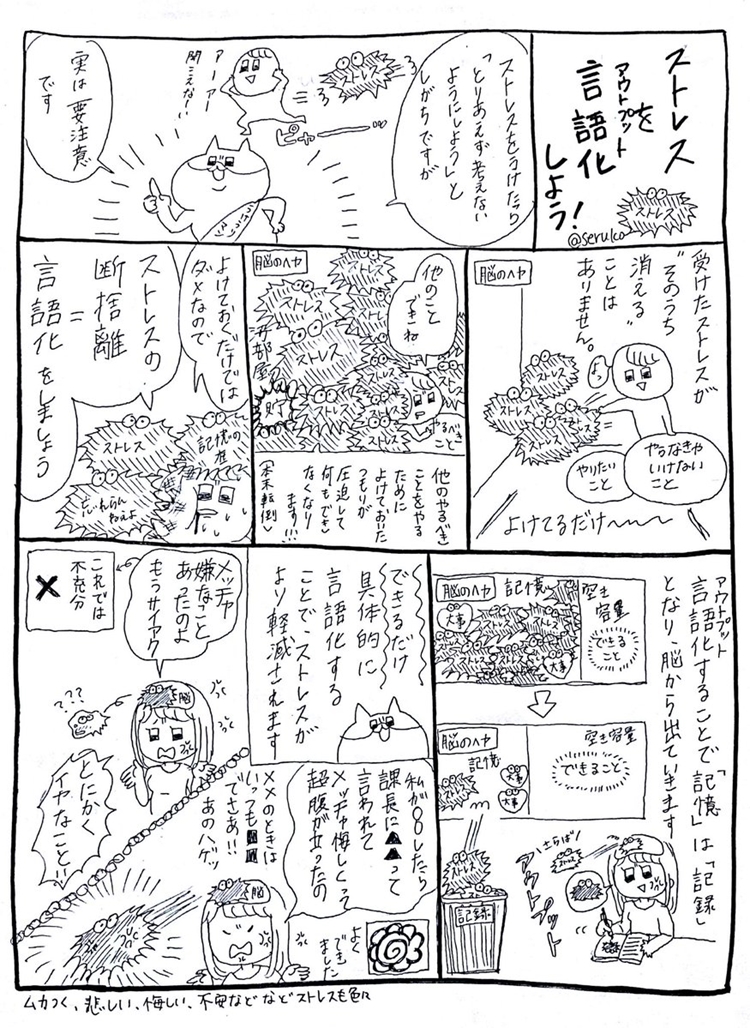 ストレス
を
アウトプット
言語化
しよう!
ストレス
@serulco
ストレスをうけたら
「とりあえず考えない
ようにしよう」と
しがちですが
アーアー
聞こえなーい
ピャーー…
実は要注意
です
受けたストレスが
“そのうち
消える”
ことは
ありません。
脳のヘヤ
ストレス
ストレス
ストレス
やるなきゃ
いけない
こと
やりたい
こと
よけてるだけ〜〜〜
脳のヘヤ
他のこと
できね
ストレス
ストレス
ストレス
ストレス
ストレス
ストレス
ストレス
汚部屋
貯
やるべき
こと
他のやるべき
ことをやる
ために
よけておいた
つもりが
圧迫して
何もでき
なくなり
ます!!!
(本末転倒)
よけておくだけでは
ダメなので
ストレスの
断捨離
=
言語化をしましょう
ストレス
記憶の
アウトプット
言語化することで「記憶」は「記録」
となり、脳から出ていきます
脳のヘヤ
記憶
大事
ストレス
ストレス
ストレス
ストレス
大事
空き
容量
できる
こと
脳のヘヤ
記憶
大事
大事
空き容量
できること
ストレス
記録
アウトプット
いさらば!
できるだけ
具体的に
言語化する
ことで、ストレスが
より軽減されます
メッチャ
嫌なこと
あったのよ
もうサイアク
これでは
不充分
×
脳
???
とにかく
イヤなこと!!
私が〇〇したら
課長に▲▲って
言われて
メッチャ悔しくって
超腹が立ったの
××のときは
いっても■■
でさあ!!
あのハゲッ
脳
よく
でき
ました
ムカつく、悲しい、悔しい、不安などなどストレスも色々